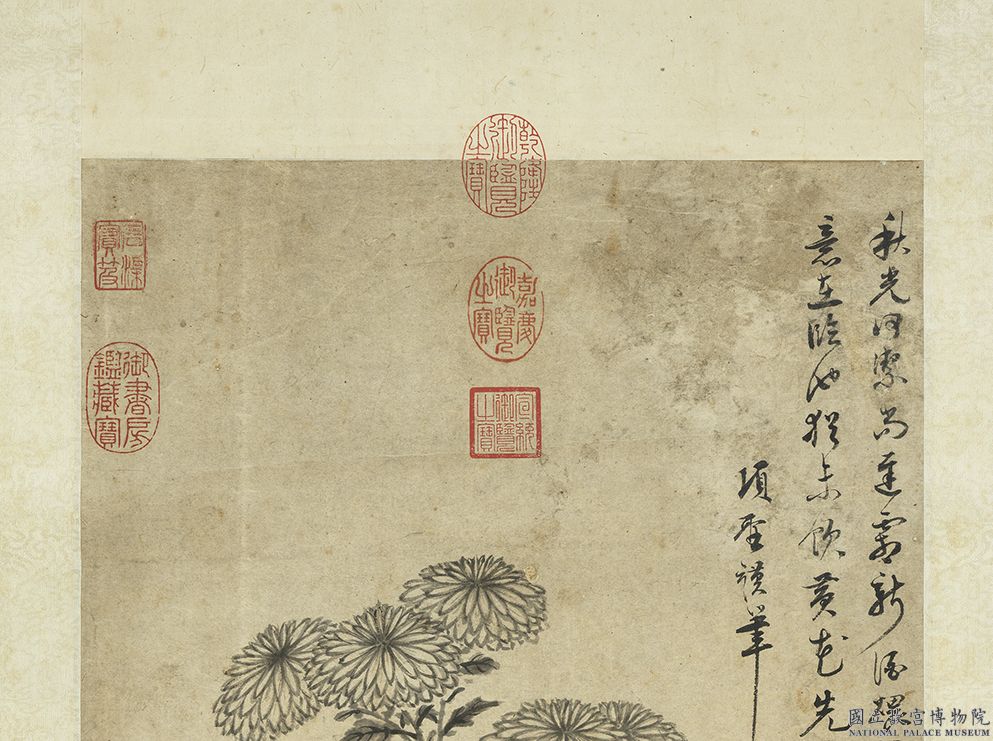 秋光何處尚遲霜新酒螺
意在臨池猶未飲黃花先
項聖謨筆
乾隆御覽之寶
嘉慶御覽之寶
宣統御覽之寶
石渠寶笈
御書房鑑藏寶
國立故宮博物院
NATIONAL PALACE MUSEUM